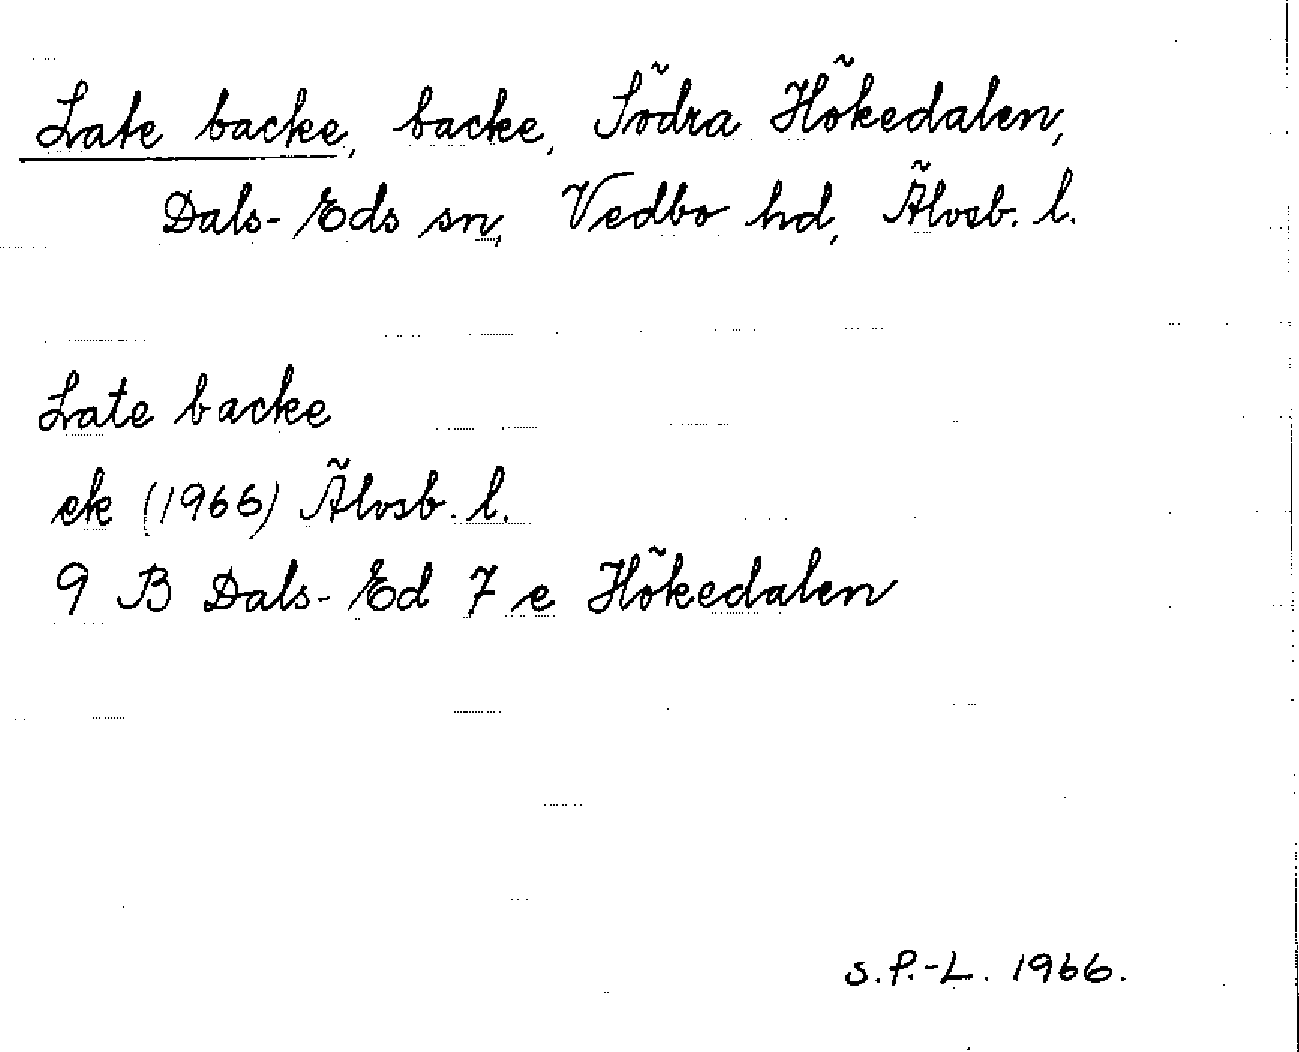 Late backe, backe, Södra Hökedalen,
Dals-Eds sn, Vedbo hd, Älvsb. l.
Late backe
ek (1966) Älvsb. l.
9 B Dals-Ed 7 e Hökedalen
S.P.-L. 1966.